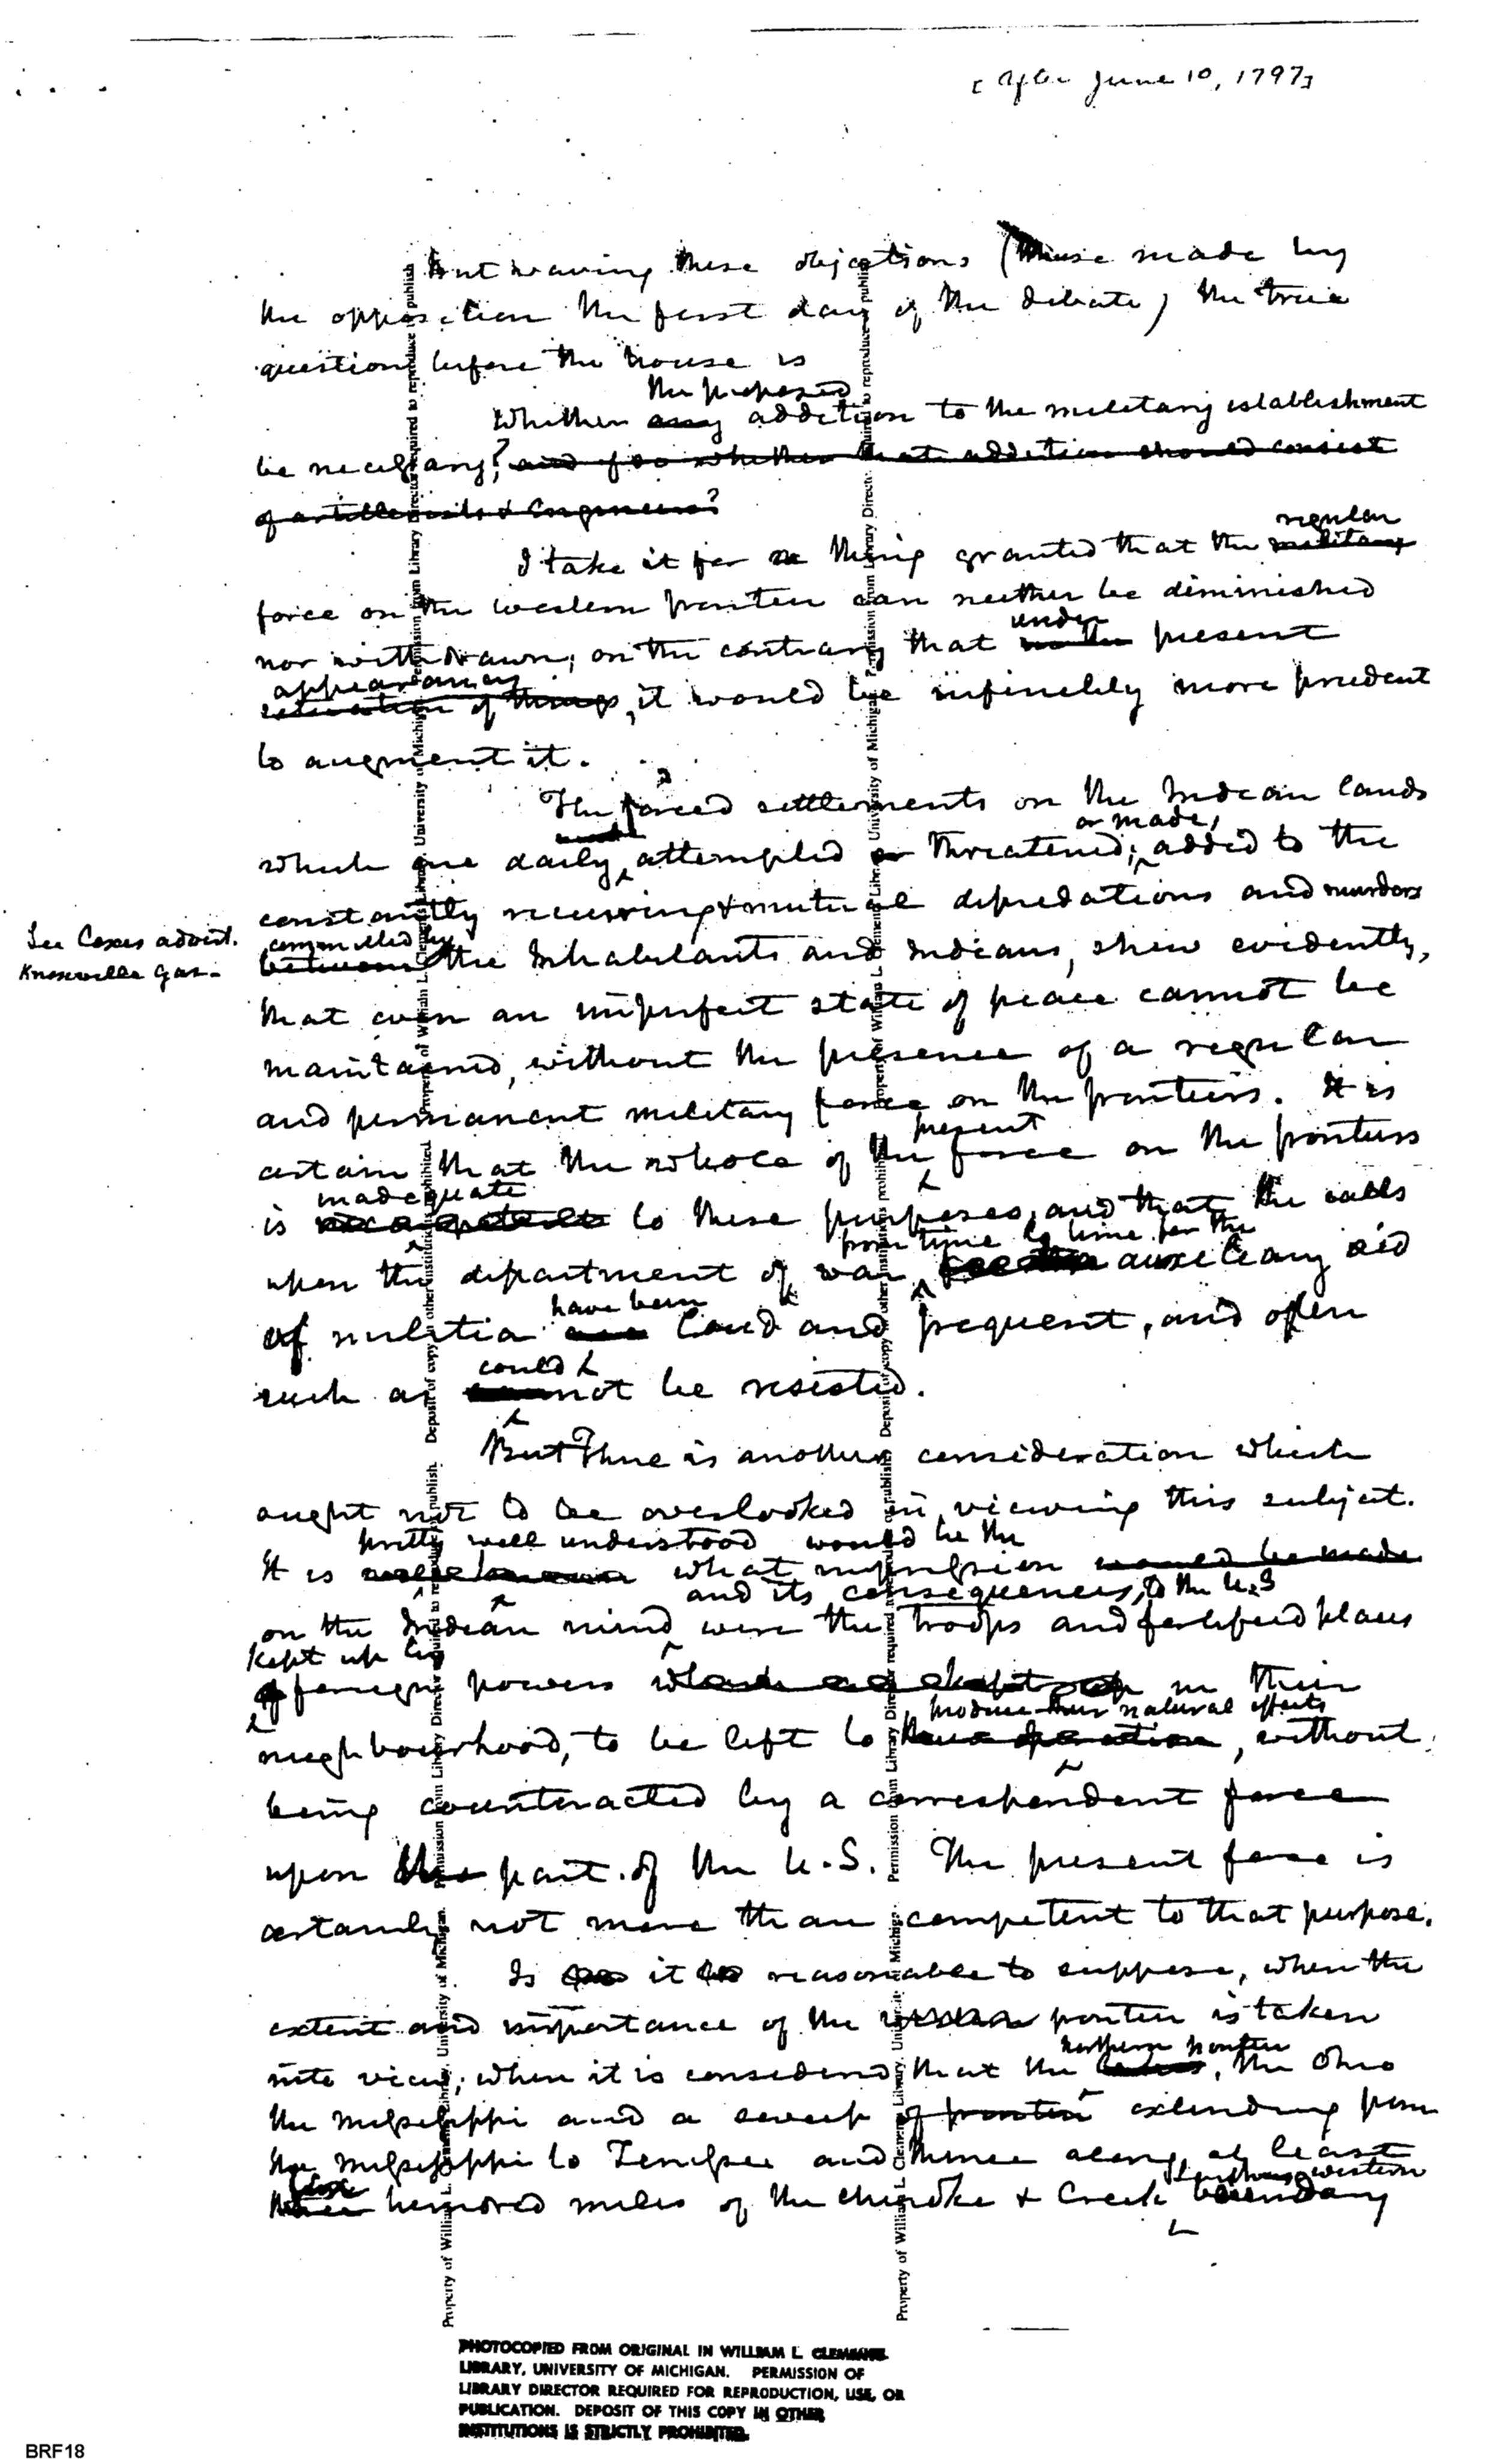 [After June 10, 1797]
But waving these objections (those made by
the opposition the first day of the debate) the true
question before the house is
the proposed
Whether any addition to the military establishment
be necessary? and if so whether that addition should consist
of artillerists & Engineers?
regular
I take it for a thing granted that the military
force on the western frontier can neither be diminished
under
nor withdrawn; on the contrary that present
appearances
situation of things, it would be infinitely more prudent
to augment it.
The forced settlements on the Indian lands
or made,
which are daily attempted or threatened; added to the
constantly recurring & mutual depredations and murders
See Coxes advert.
Knoxville Gaz.
committed by
between the Inhabitants and Indians, shew evidently,
that even an imperfect state of peace cannot be
maintained, without the presence of a regular
and permanent military force on the frontiers. It is
present
certain that the whole of the force on the frontiers
inadequate
is incompetent to these purposes, and that the calls
from time to time for the
upon the department of war for the auxiliary aid
have been
of militia are loud and frequent, and often
could
such as cannot be resisted.
But There is another consideration which
ought not to be overlooked in viewing this subject.
pretty well understood would be the
It is well known what impression would be made
and its consequences, to the U.S
on the Indian mind were the troops and fortifyed places
kept up by
of foreign powers which are kept up in their
produce their natural effects
neighbourhood, to be left to their operation, without
being counteracted by a correspondent force
upon the part of the U.S. The present force is
certainly not more than competent to that purpose.
Is it reasonable to suppose, when the
extent and importance of the frontier is taken
northern frontier
into view; when it is considered that the lakes, the Ohio
the Mississippi and a sweep of frontier extending from
the Mississippi to Tenissee and thence along at least
five
three hundred miles of the Cherokee & Creek boundary
& southwestern
Property of William L. Clements Library, University of Michigan. Permission from Library Director required to reproduce or publish. Deposit of copy in other institutions prohibited.
Property of William L. Clements Library, University of Michigan. Permission from Library Director required to reproduce or publish. Deposit of copy in other institutions prohibited.
PHOTOCOPIED FROM ORIGINAL IN WILLIAM L. CLEMENTS
LIBRARY, UNIVERSITY OF MICHIGAN. PERMISSION OF
LIBRARY DIRECTOR REQUIRED FOR REPRODUCTION, USE, OR
PUBLICATION. DEPOSIT OF THIS COPY IN OTHER
INSTITUTIONS IS STRICTLY PROHIBITED.
BRF18